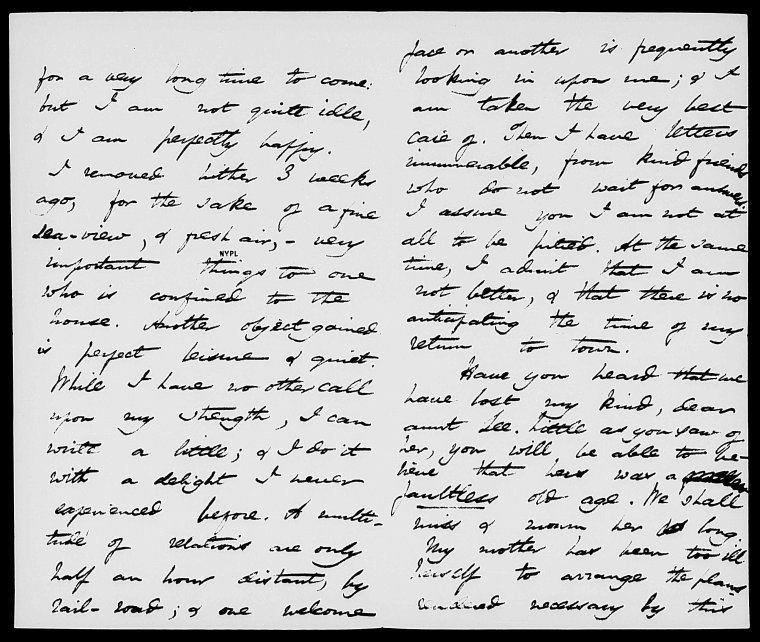 for a very long time to come:
but I am not quite idle,
& I am perfectly happy.
I removed hither 3 weeks
ago, for the sake of a fine
sea-view, & fresh air, - very
NYPL
important things to one
who is confined to the
house. Another object gained
is perfect leisure & quiet.
While I have no other call
upon my strength, I can
write a little; & I do it
with a delight I never
experienced before. A multi-
tude of relations are only
half an hour distant, by
rail-road; & one welcome
face or another is frequently
looking in upon me; & I
am taken the very best
care of. Then I have letters
innumerable, from kind friends
who do not wait for answers.
I assure you I am not at
all to be pitied. At the same
time, I admit that I am
not better, & that there is no
anticipating the time of my
return to town.
Have you heard that we
have lost my kind, dear
aunt Lee. Little as you saw of
her, you will be able to be-
lieve that hers was a
faultless old age. We shall
miss & mourn her long.
My mother has been too ill
herself to arrange the plans
rendered necessary by this